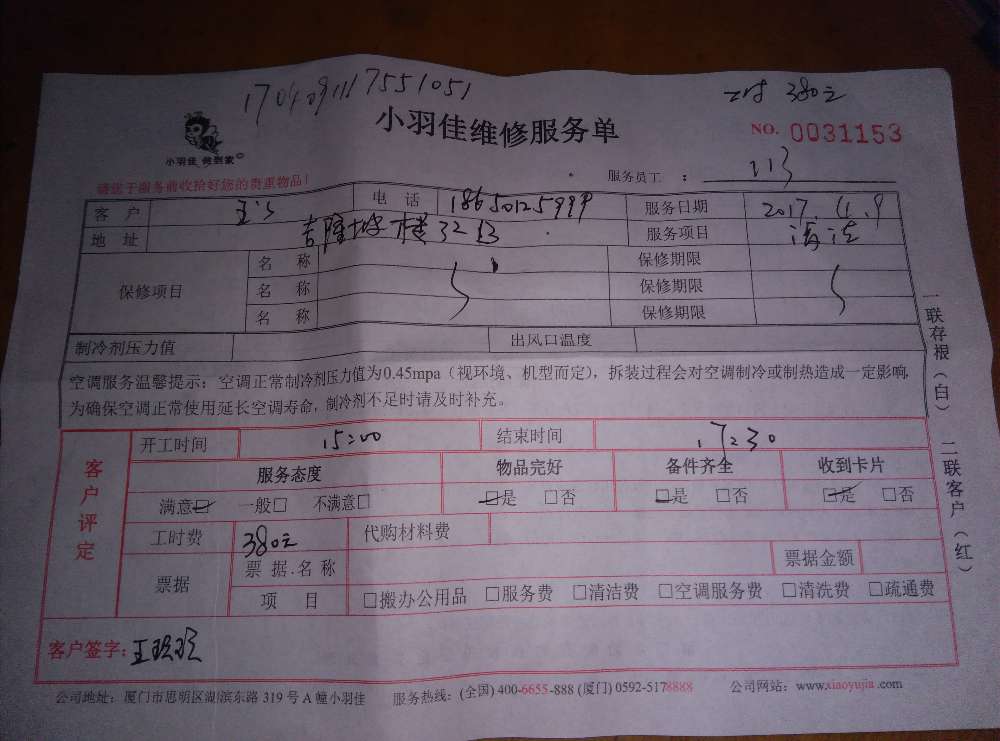 小羽佳维修服务单
380元
NO. 0031153
小羽佳 做到家
请您于服务前收拾好您的贵重物品!
服务员工 : 113
客户 电话 18650125999 服务日期 2017.11.9
地址 服务项目 清洁
保修项目 名称 保修期限
名称 保修期限
名称 保修期限
制冷剂压力值 出风口温度
空调服务温馨提示:空调正常制冷剂压力值为0.45mpa(视环境、机型而定),拆装过程会对空调制冷或制热造成一定影响,
为确保空调正常使用延长空调寿命,制冷剂不足时请及时补充。
客户评定
开工时间 15:00 结束时间 17:30
服务态度 物品完好 备件齐全 收到卡片
满意☑ 一般□ 不满意□ ☑是 □否 □是 □否 ☑是 □否
工时费 380元 代购材料费
票据 票据.名称 票据金额
项目 □搬办公用品 □服务费 □清洁费 □空调服务费 □清洗费 □疏通费
客户签字:
公司地址:厦门市思明区湖滨东路 319 号 A 幢小羽佳 服务热线:(全国) 400-6655-888 (厦门) 0592-5178888 公司网站:www.xiaoyujia.com
一联存根(白) 二联客户(红)